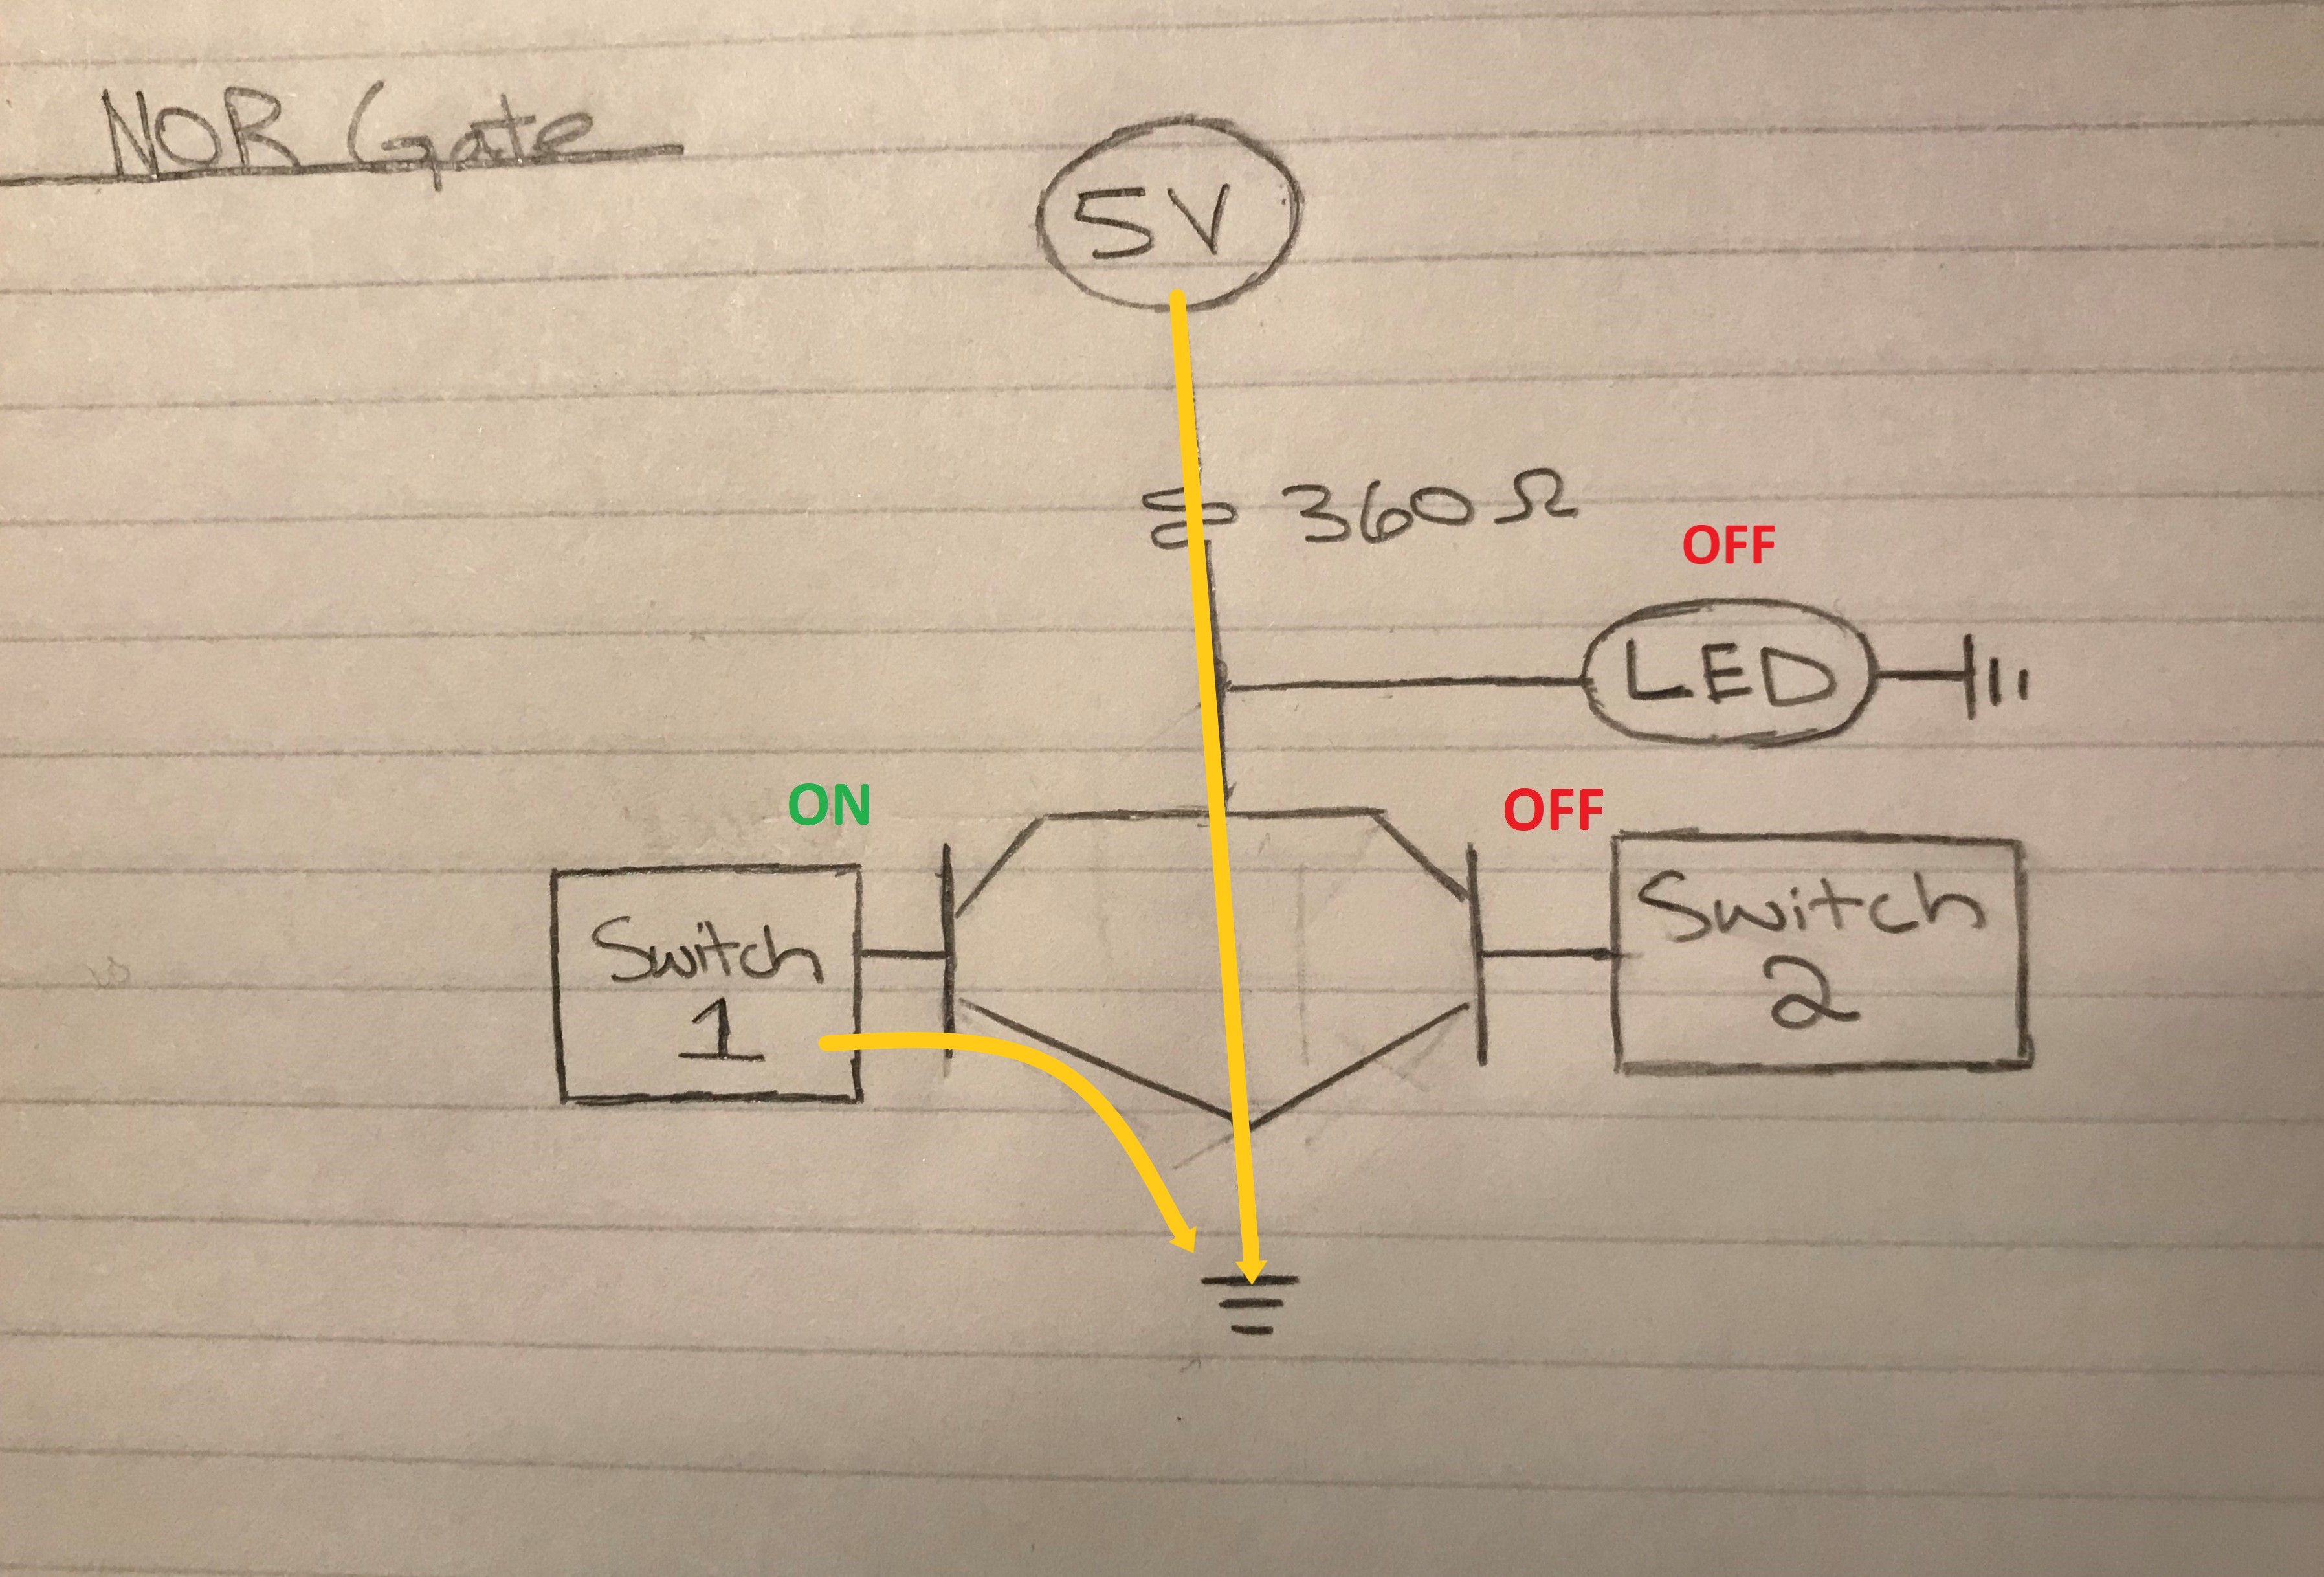 NOR Gate
5V
360Ω
OFF
LED
ON
OFF
Switch
1
Switch
2